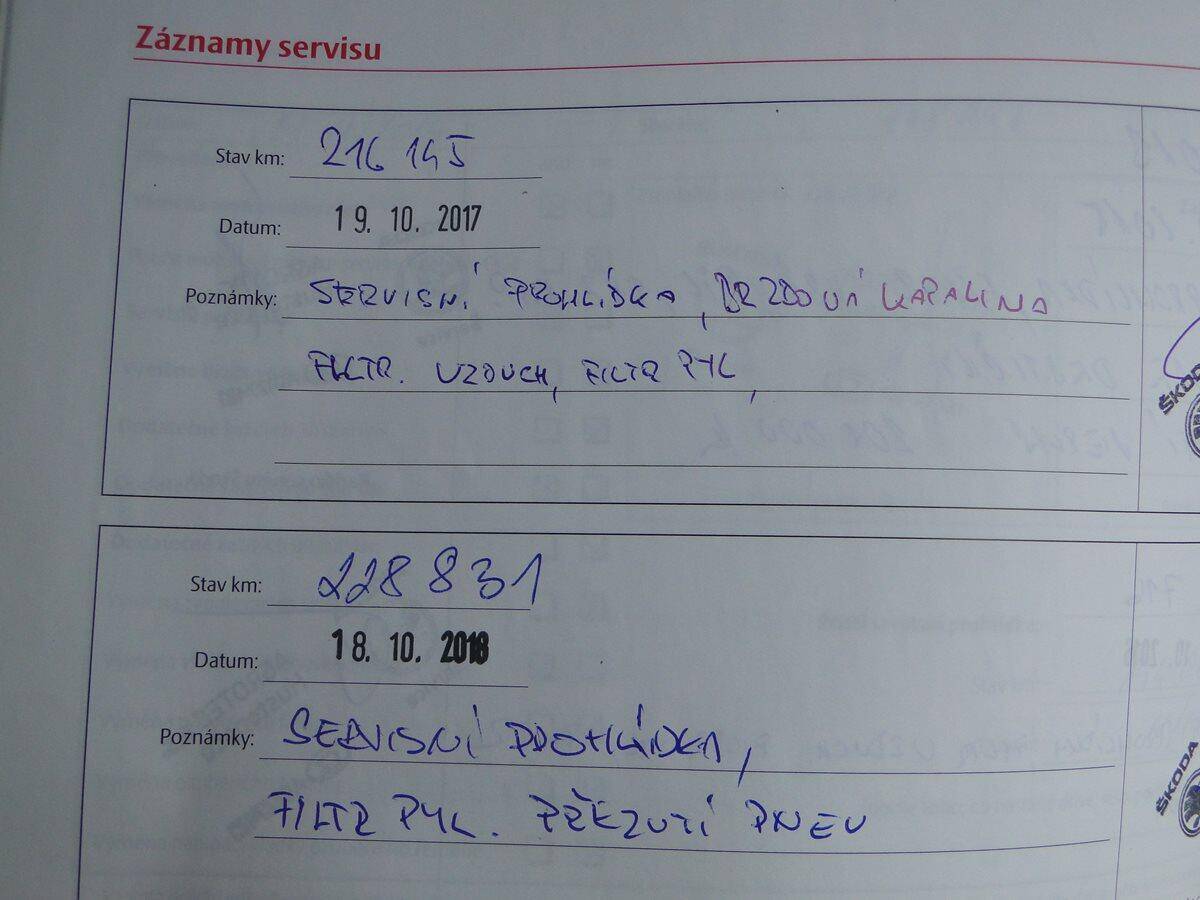 Záznamy servisu
Stav km: 216 145
Datum: 19. 10. 2017
Poznámky: SERVISNÍ PROHLÍDKA, BRZDOVÁ KAPALINA
FILTR. VZDUCH, FILTR PYL,
ŠKODA
Stav km: 228 831
Datum: 18. 10. 2018
Poznámky: SERVISNÍ PROHLÍDKA,
FILTR PYL. PŘEZUTÍ PNEU
ŠKODA